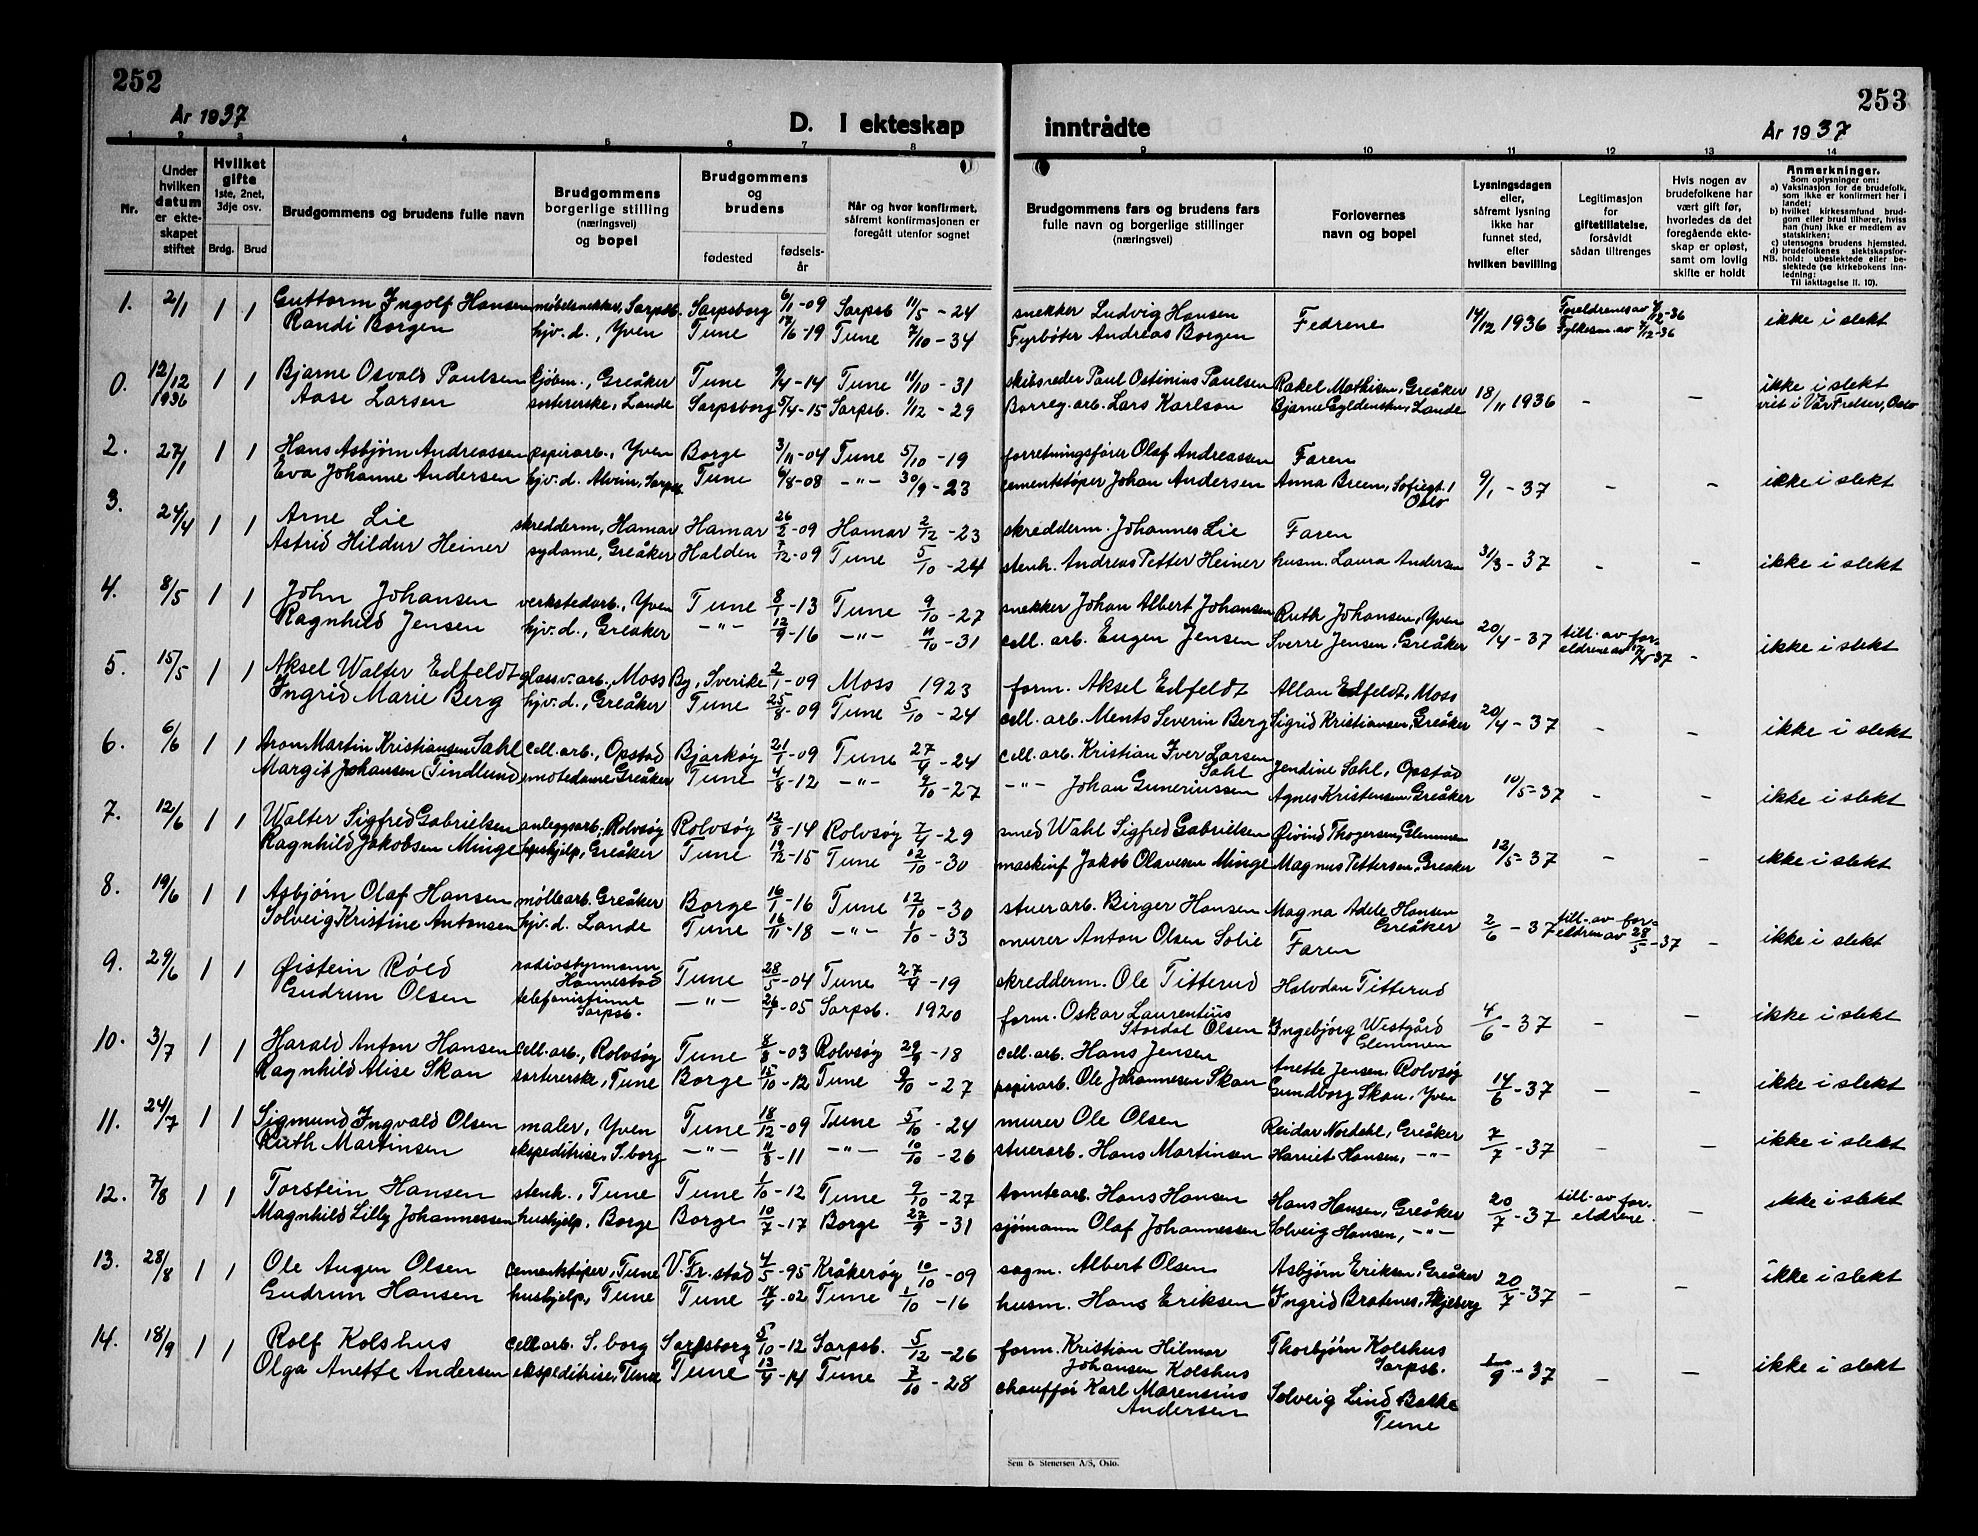 252
253
År 1937
D. I ekteskap
inntrådte
År 1937
1 2 3 4 5 6 7 8
9 10 11 12 13 14
Nr.
Under
hvilken
datum
er ekte-
skapet
stiftet
Hvilket
gifte
1ste, 2net,
3dje osv.
Brdg. Brud
Brudgommens og brudens fulle navn
Brudgommens
borgerlige stilling
(næringsvei)
og bopel
Brudgommens
og
brudens
fødested
fødsels-
år
Når og hvor konfirmert,
såfremt konfirmasjonen er
foregått utenfor sognet
Brudgommens fars og brudens fars
fulle navn og borgerlige stillinger
(næringsvei)
Forlovernes
navn og bopel
Lysningsdagen
eller,
såfremt lysning
ikke har
funnet sted,
eller
hvilken bevilling
Legitimasjon
for
giftetillatelse,
forsåvidt
sådan tiltrenges
Hvis nogen av
brudefolkene har
vært gift før,
hvorledes da det
foregående ekte-
skap er opløst,
samt om lovlig
skifte er holdt
Anmerkninger.
Som oplysninger om:
a) Vaksinasjon for de brudefolk,
som ikke er konfirmert her i
landet;
b) hvilket kirkesamfund brud-
gom eller brud tilhører, hviss
han (hun) ikke er medlem av
statskirken;
c) utensogns brudens hjemsted.
d) brudefolkenes slektskapsfor-
NB. hold: ubeslektede eller be-
slektede (se kirkebokens inn-
ledning:
Til iakttagelse II. 10).
1. 2/1 1 1 Guttorm Ingolf Hansen møbelsnekker, Sarpsb. Sarpsborg 6/11-09 Sarpsb 11/5-24 snekker Ludvig Hansen Fedrene 14/12 1936 Foreldrenes av ikke i slekt
Randi Borgen hjv.d., Yven Tune 17/6-19 Tune 7/10-34 Fyrbøter Andreas Borgen Fylkesm. av
0. 12/12 1936 1 1 Bjarne Osvald Paulsen kjøbm., Greåker Tune 9/4-14 Tune 11/10-31 skibsreder Paul Ostinius Paulsen Rakel Mathisen, Greåker 18/11 1936 - - ikke i slekt
Aase Larsen sortererske, Lande Sarpsborg 5/4-15 Sarpsb. 1/12-29 Borreg. arb. Lars Karlson Bjarne Gyldenskn, Lande viet i Vår Frelser, Oslo
2. 27/1 1 1 Hans Asbjørn Andreassen papirarb., Yven Borge 3/11-04 Tune 5/10-19 forretningsfører Olaf Andreassen Faren
Eva Johanne Andersen hjv.d. Alvim, Sarpsb Tune 6/8-08 -"- 30/9-23 cementstøper Johan Andersen Anna Breen, Sofiegt. 1 Oslo 9/1-37 - - ikke i slekt
3. 24/4 1 1 Arne Lie skredderm, Hamar Hamar 26/2-09 Hamar 2/12-23 skredderm. Johannes Lie Faren
Astrid Hildur Heiner sydame, Greåker Halden 7/12-09 Tune 5/10-24 stenh. Andreas Petter Heiner husm. Laura Andersen 31/3-37 - - ikke i slekt
4. 8/5 1 1 John Johansen verkstedarb., Yven Tune 8/1-13 Tune 9/10-27 snekker Johan Albert Johansen Ruth Johansen, Yven
Ragnhild Jensen hjv.d., Greåker -"- 12/9-16 -"- 11/10-31 cell. arb. Eugen Jensen Sverre Jensen, Greåker 20/4-37 till. av for-
eldrene av 17/4-37 - ikke i slekt
5. 15/5 1 1 Aksel Walter Edfeldt glassv.arb., Moss By, Sverike 2/1-09 Moss 1923 form. Aksel Edfeldt Allan Edfeldt, Moss
Ingrid Marie Berg hjv.d., Greåker Tune 25/8-09 Tune 5/10-24 cell. arb. Ments Severin Berg Sigrid Kristiansen, Greåker 20/4-37 - - ikke i slekt
6. 6/6 1 1 Aron Martin Kristiansen Sahl cell. arb., Opstad Bjarkøy 21/1-09 Tune 27/4-24 cell. arb. Kristian Iver Larsen Sahl Jendine Sahl, Opstad
Margit Johansen Tindlund motedame Greåker Tune 4/8-12 -"- 9/10-27 -"- Johan Guneriussen Agnes Kristensen, Greåker 10/5-37 - - ikke i slekt
7. 12/6 1 1 Walter Sigfred Gabrielsen anleggsarb., Rolvsøy Rolvsøy 12/8-14 Rolvsøy 7/4-29 smed Wahl Sigfred Gabrielsen Øivind Thogersen, Glemmen
Ragnhild Jakobsen Minge hushjelp, Greåker Tune 19/12-15 Tune 12/10-30 maskinf Jakob Olavesen Minge Magnus Pettersen, Greåker 12/5-37 - - ikke i slekt
8. 19/6 1 1 Asbjørn Olaf Hansen møllearb. Greåker Borge 16/1-16 Tune 12/10-30 stuerarb. Birger Hansen Magna Adele Hansen Greåker
Solveig Kristine Antonsen hjv.d. Lande Tune 16/11-18 -"- 1/10-33 murer Anton Olsen Solie Faren 2/6-37 till. av for-
eldren av 28/5-37 - ikke i slekt
9. 29/6 1 1 Øistein Röed radiostyrmann Hannestad Tune 28/5-04 Tune 27/4-19 skredderm. Ole Titterud Halvdan Titterud
Gudrun Olsen telefonistinne Sarpsb. -"- 26/7-05 Sarpsb. 1920 form. Oskar Laurentius Stordal Olsen Ingebjørg Westgård Glemmen 4/6-37 - - ikke i slekt
10. 3/7 1 1 Harald Anton Hansen cell. arb., Rolvsøy Tune 8/8-03 Rolvsøy 29/9-18 cell. arb. Hans Jensen Anette Jensen, Rolvsøy
Ragnhild Alise Skan sortererske, Tune Borge 15/10-12 Tune 9/10-27 papirarb. Ole Johannesen Skan Gundborg Skan, Yven 14/6-37 - - ikke i slekt
11. 24/7 1 1 Sigmund Ingvald Olsen maler, Yven Tune 18/12-09 Tune 5/10-24 murer Ole Olsen Reidar Nordahl, Greåker
Ruth Martinsen ekspeditrise, S.borg -"- 11/8-11 -"- 10/10-26 stuerarb. Hans Martinsen Harriet Hansen, -"- 7/7-37 - - ikke i slekt
12. 7/8 1 1 Torstein Hansen stenh., Tune Tune 1/10-12 Tune 9/10-27 tomtearb. Hans Hansen Hans Hansen, Greåker 20/7-37 till. av for-
eldrene. - ikke i slekt
Magnhild Lilly Johannessen hushjelp, Borge Borge 10/7-17 Borge 27/9-31 sjømann Olaf Johannessen Solveig Hansen, -"-
13. 28/8 1 1 Ole Augen Olsen cementstøper, Tune V. Fr.stad 4/5-95 Kråkerøy 10/10-09 sagm. Albert Olsen Asbjørn Eriksen, Greåker
Gudrun Hansen hushjelp, Tune Tune 14/4-02 Tune 1/10-16 husm. Hans Eriksen Ingrid Bratenes, Skjeberg 20/7-37 - - ikke i slekt
14. 18/9 1 1 Rolf Kolshus cell arb. S. borg Sarpsborg 5/10-12 Sarpsb. 5/12-26 form. Kristian Hilmar Johansen Kolshus Thorbjørn Kolshus Sarpsb.
Olga Anette Andersen ekspeditrise, Tune Tune 13/4-14 Tune 7/10-28 chauffør Karl Marensius Andersen Solveig Lind Bakke Tune 9-37 - - ikke i slekt
Sem & Stenersen A/S, Oslo.